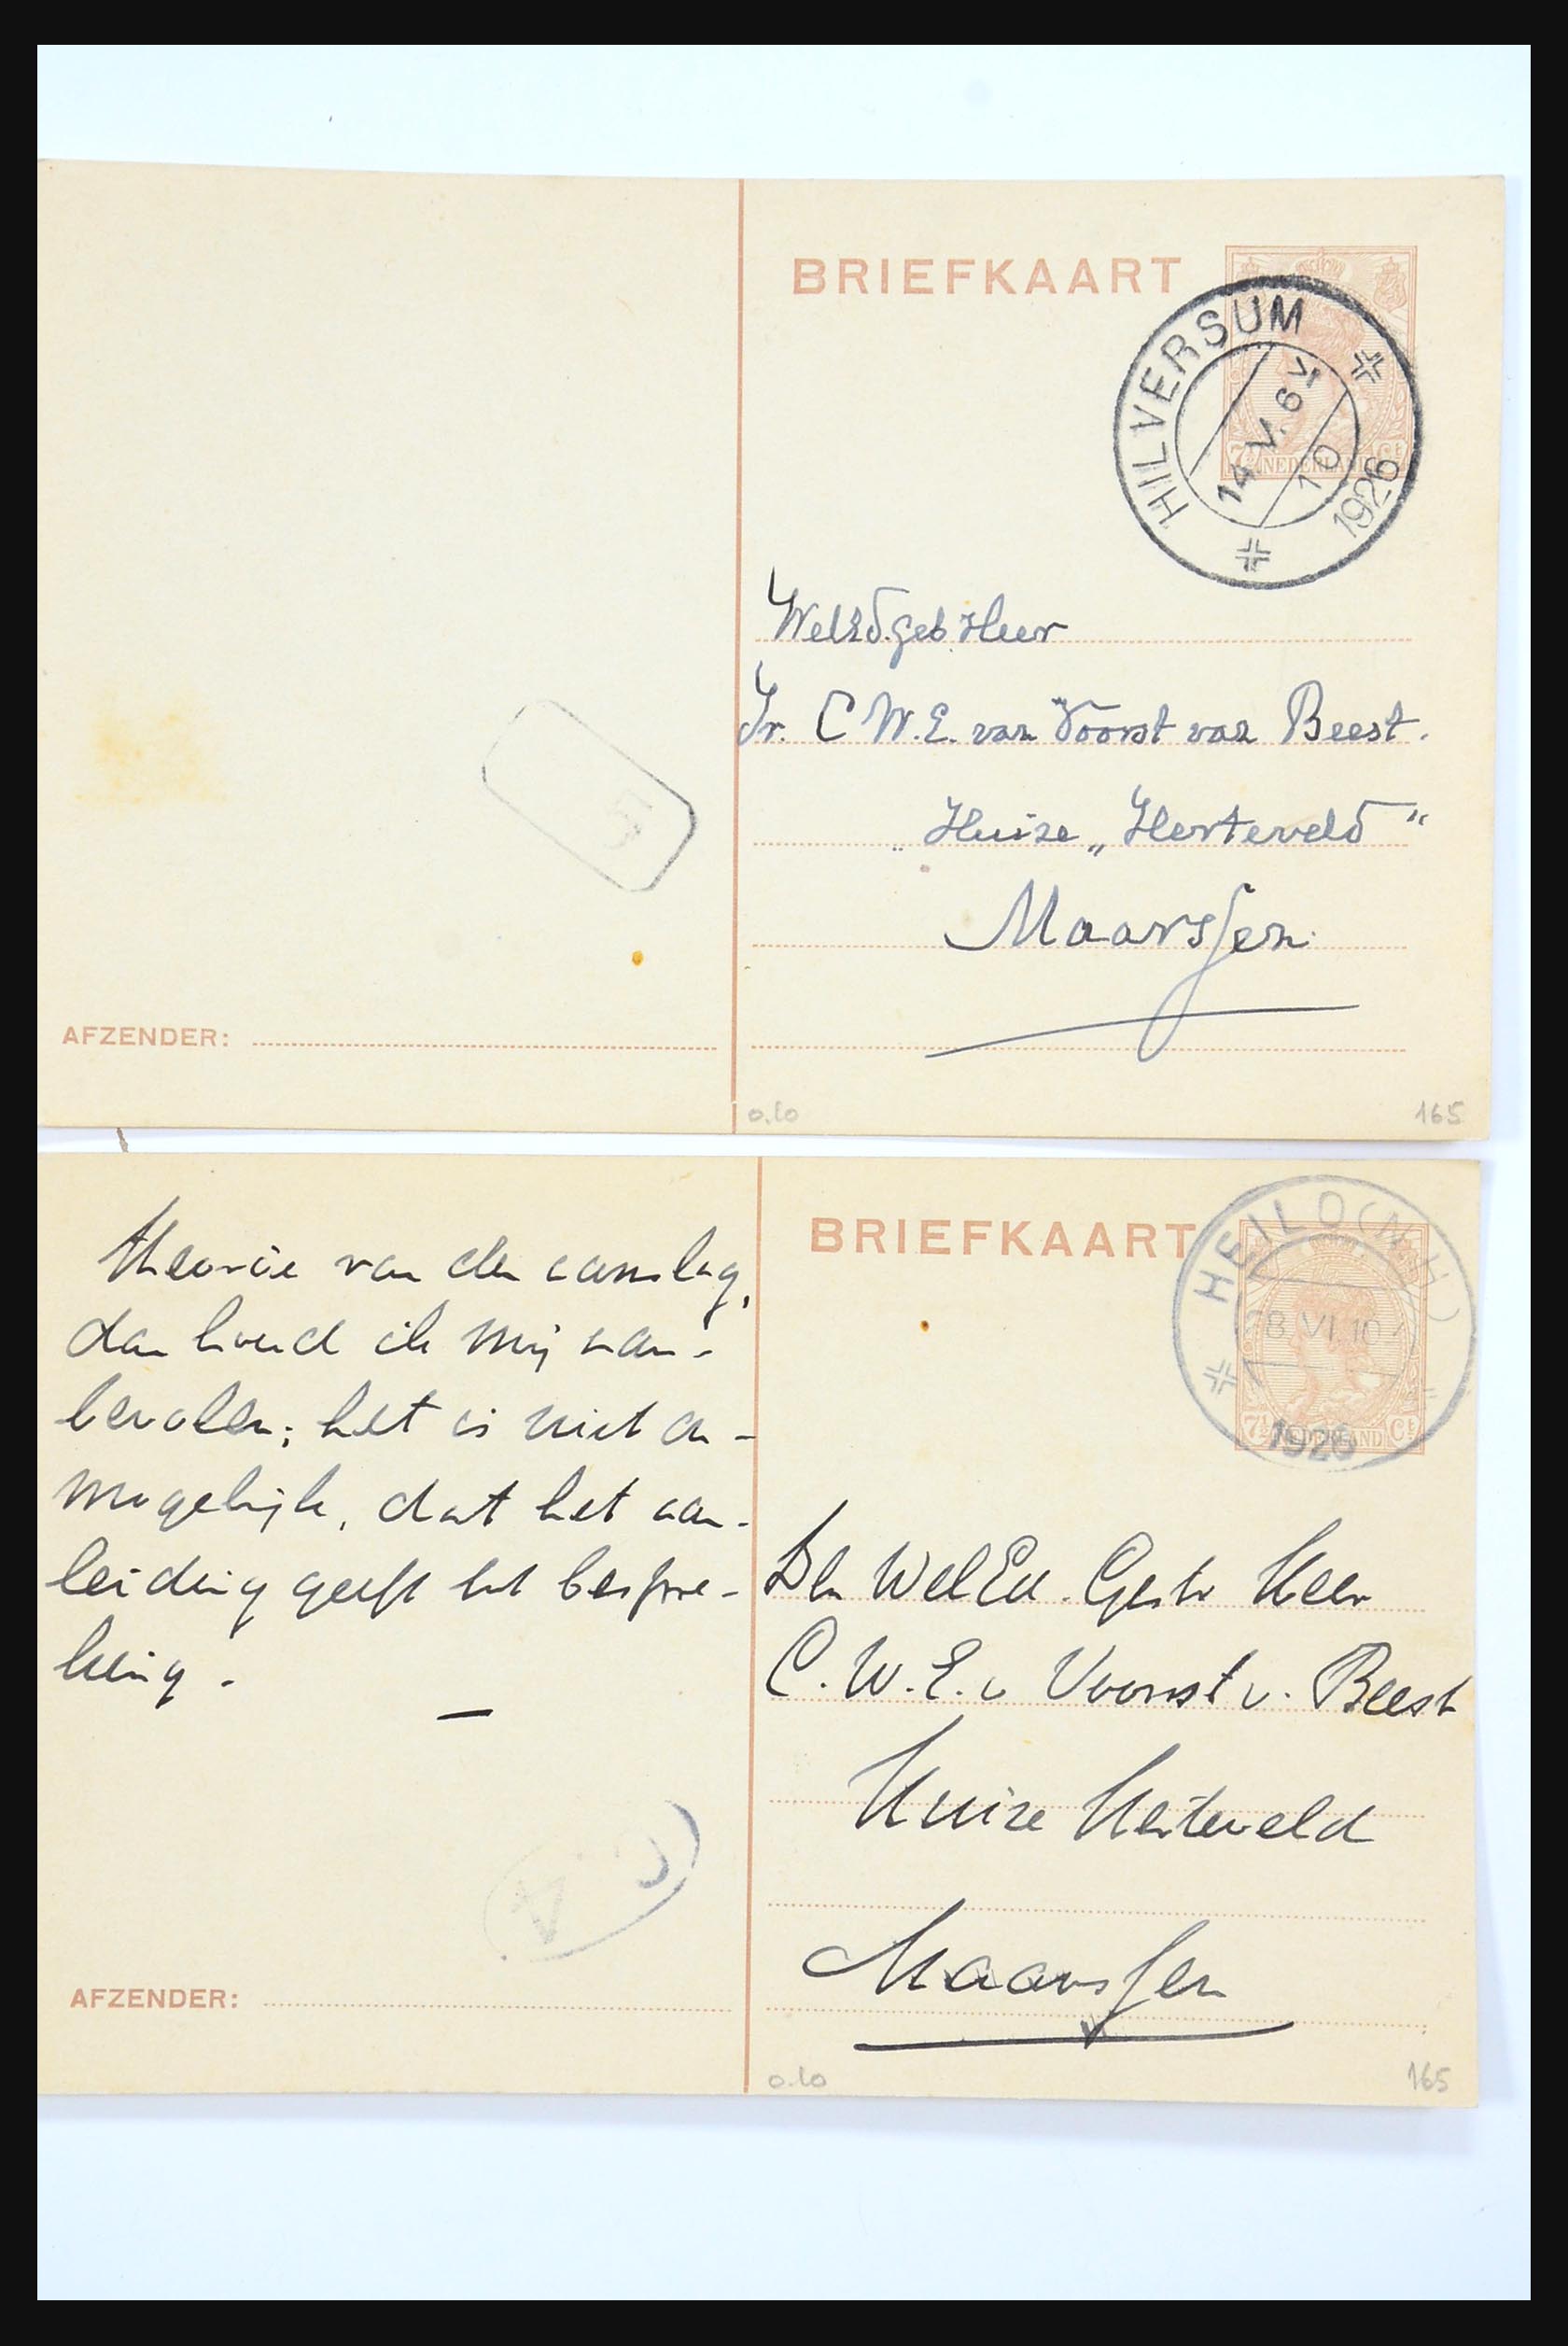 BRIEFKAART
HILVERSUM
14 V. 6 V
10
1926
7½ NEDERLAND Ct
WelEd.geb. Heer
Ir. C W. E. van Voorst van Beest.
Huize „Herteveld"
Maarssen.
AFZENDER:
0.10
165
theorie van den aanslag,
dan houd ik mij aan-
bevolen; het is niet on-
mogelijk, dat het aan-
leiding geeft tot bespre-
king.
AFZENDER:
BRIEFKAART
HEILO (N.H.)
28. VI. 10
1926
7½ NEDERLAND Ct
Den WelEd. Gestr Heer
C. W. E. v Voorst v. Beest
Huize Herteveld
Maarssen
0.10
165